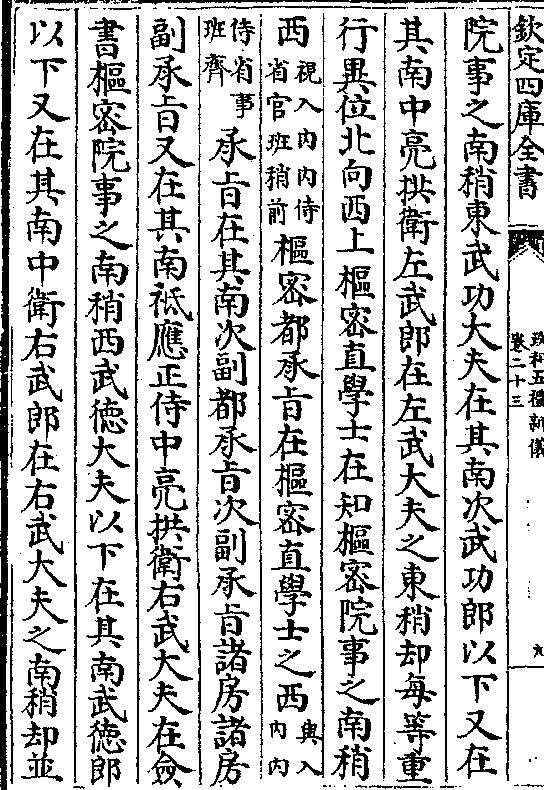 欽定四庫全書
政和五禮新儀
卷二十三
九
院事之南稍東武功大夫在其南次武功郎以下又在
其南中亮拱衛左武郎在左武大夫之東稍却每等重
行異位北向西上樞密直學士在知樞密院事之南稍
西視入内内侍省官班稍前樞密都承㫖在樞密直學士之西與入内内
侍省事班齊承㫖在其南次副都承㫖次副承㫖諸房諸房
副承㫖又在其南祗應正侍中亮拱衛右武大夫在僉
書樞密院事之南稍西武德大夫以下在其南武德郎
以下又在其南中衛右武郎在右武大夫之南稍却並